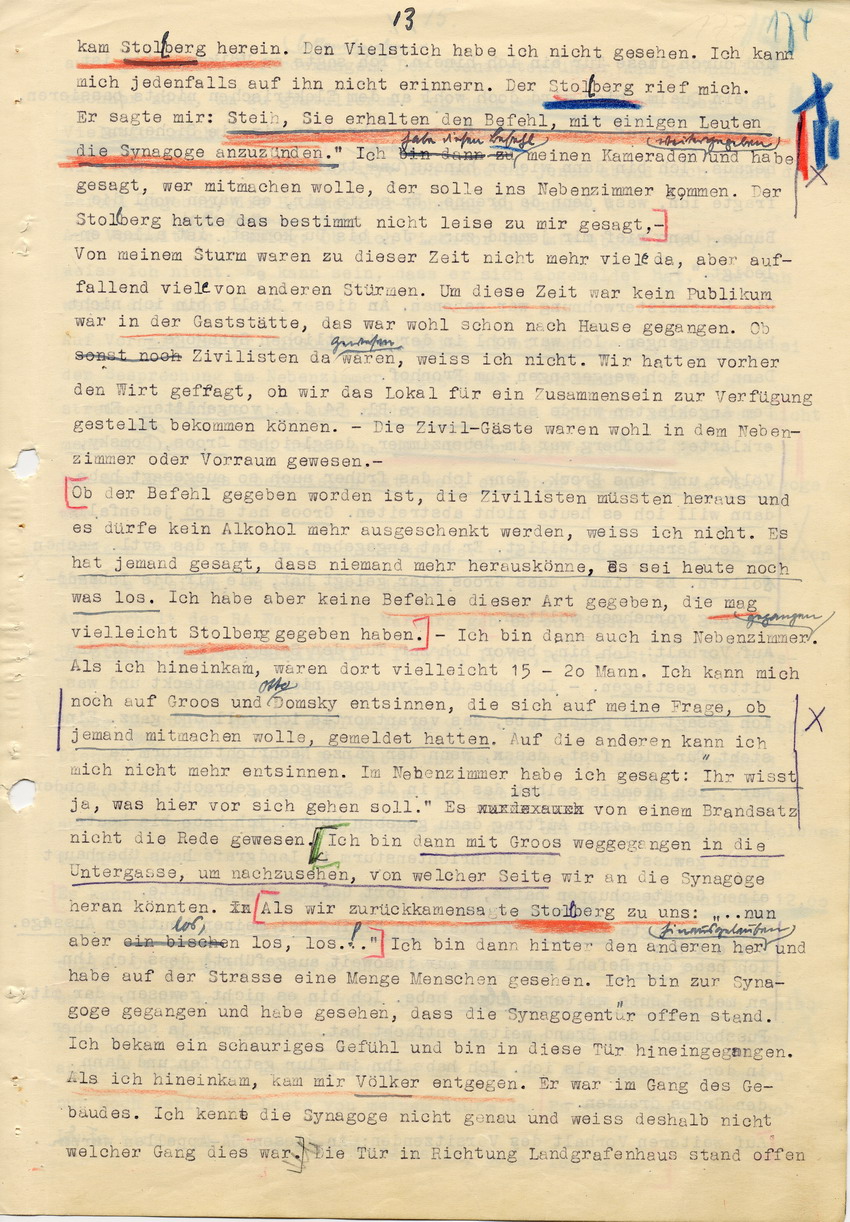 13
174
kam Stollberg herein. Den Vielstich habe ich nicht gesehen. Ich kann
mich jedenfalls auf ihn nicht erinnern. Der Stollberg rief mich.
Er sagte mir: Steih, Sie erhalten den Befehl, mit einigen Leuten
habe diesen Befehl (weitergegeben)
die Synagoge anzuzünden." Ich bin dann zu meinen Kameraden und habe
gesagt, wer mitmachen wolle, der solle ins Nebenzimmer kommen. Der
Stollberg hatte das bestimmt nicht leise zu mir gesagt,-
Von meinem Sturm waren zu dieser Zeit nicht mehr viele da, aber auf-
fallend viele von anderen Stürmen. Um diese Zeit war kein Publikum
war in der Gaststätte, das war wohl schon nach Hause gegangen. Ob
gewesen
sonst noch Zivilisten da waren, weiss ich nicht. Wir hatten vorher
den Wirt gefragt, ob wir das Lokal für ein Zusammensein zur Verfügung
gestellt bekommen können. - Die Zivil-Gäste waren wohl in dem Neben-
zimmer oder Vorraum gewesen.-
Ob der Befehl gegeben worden ist, die Zivilisten müssten heraus und
es dürfe kein Alkohol mehr ausgeschenkt werden, weiss ich nicht. Es
hat jemand gesagt, dass niemand mehr herauskönne, es sei heute noch
was los. Ich habe aber keine Befehle dieser Art gegeben, die mag
gegangen
vielleicht Stolberg gegeben haben. - Ich bin dann auch ins Nebenzimmer.
Als ich hineinkam, waren dort vielleicht 15 - 20 Mann. Ich kann mich
Otto
noch auf Groos und Domsky entsinnen, die sich auf meine Frage, ob
jemand mitmachen wolle, gemeldet hatten. Auf die anderen kann ich
mich nicht mehr entsinnen. Im Nebenzimmer habe ich gesagt: "Ihr wisst
ist
ja, was hier vor sich gehen soll." Es wurde auch von einem Brandsatz
nicht die Rede gewesen. Ich bin dann mit Groos weggegangen in die
Untergasse, um nachzusehen, von welcher Seite wir an die Synagoge
heran könnten. Im Als wir zurückkamen sagte Stollberg zu uns: "..nun
los, (hinausgelaufen)
aber ein bischen los, los.!." Ich bin dann hinter den anderen her und
habe auf der Strasse eine Menge Menschen gesehen. Ich bin zur Syna-
goge gegangen und habe gesehen, dass die Synagogentür offen stand.
Ich bekam ein schauriges Gefühl und bin in diese Tür hineingegangen.
Als ich hineinkam, kam mir Völker entgegen. Er war im Gang des Ge-
bäudes. Ich kennt die Synagoge nicht genau und weiss deshalb nicht
welcher Gang dies war. Die Tür in Richtung Landgrafenhaus stand offen